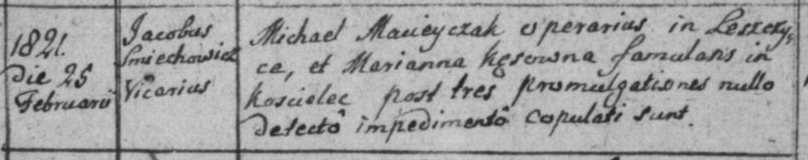 1821.
Die 25
Februarii
Jacobus
Smiechowicz
Vicarius
Michael Macieyczak operarius in Leszczy,
ce, et Marianna Kęsowna famulans in
Koscielec post tres promulgationes nullo
detectô impedimentô copulati sunt.